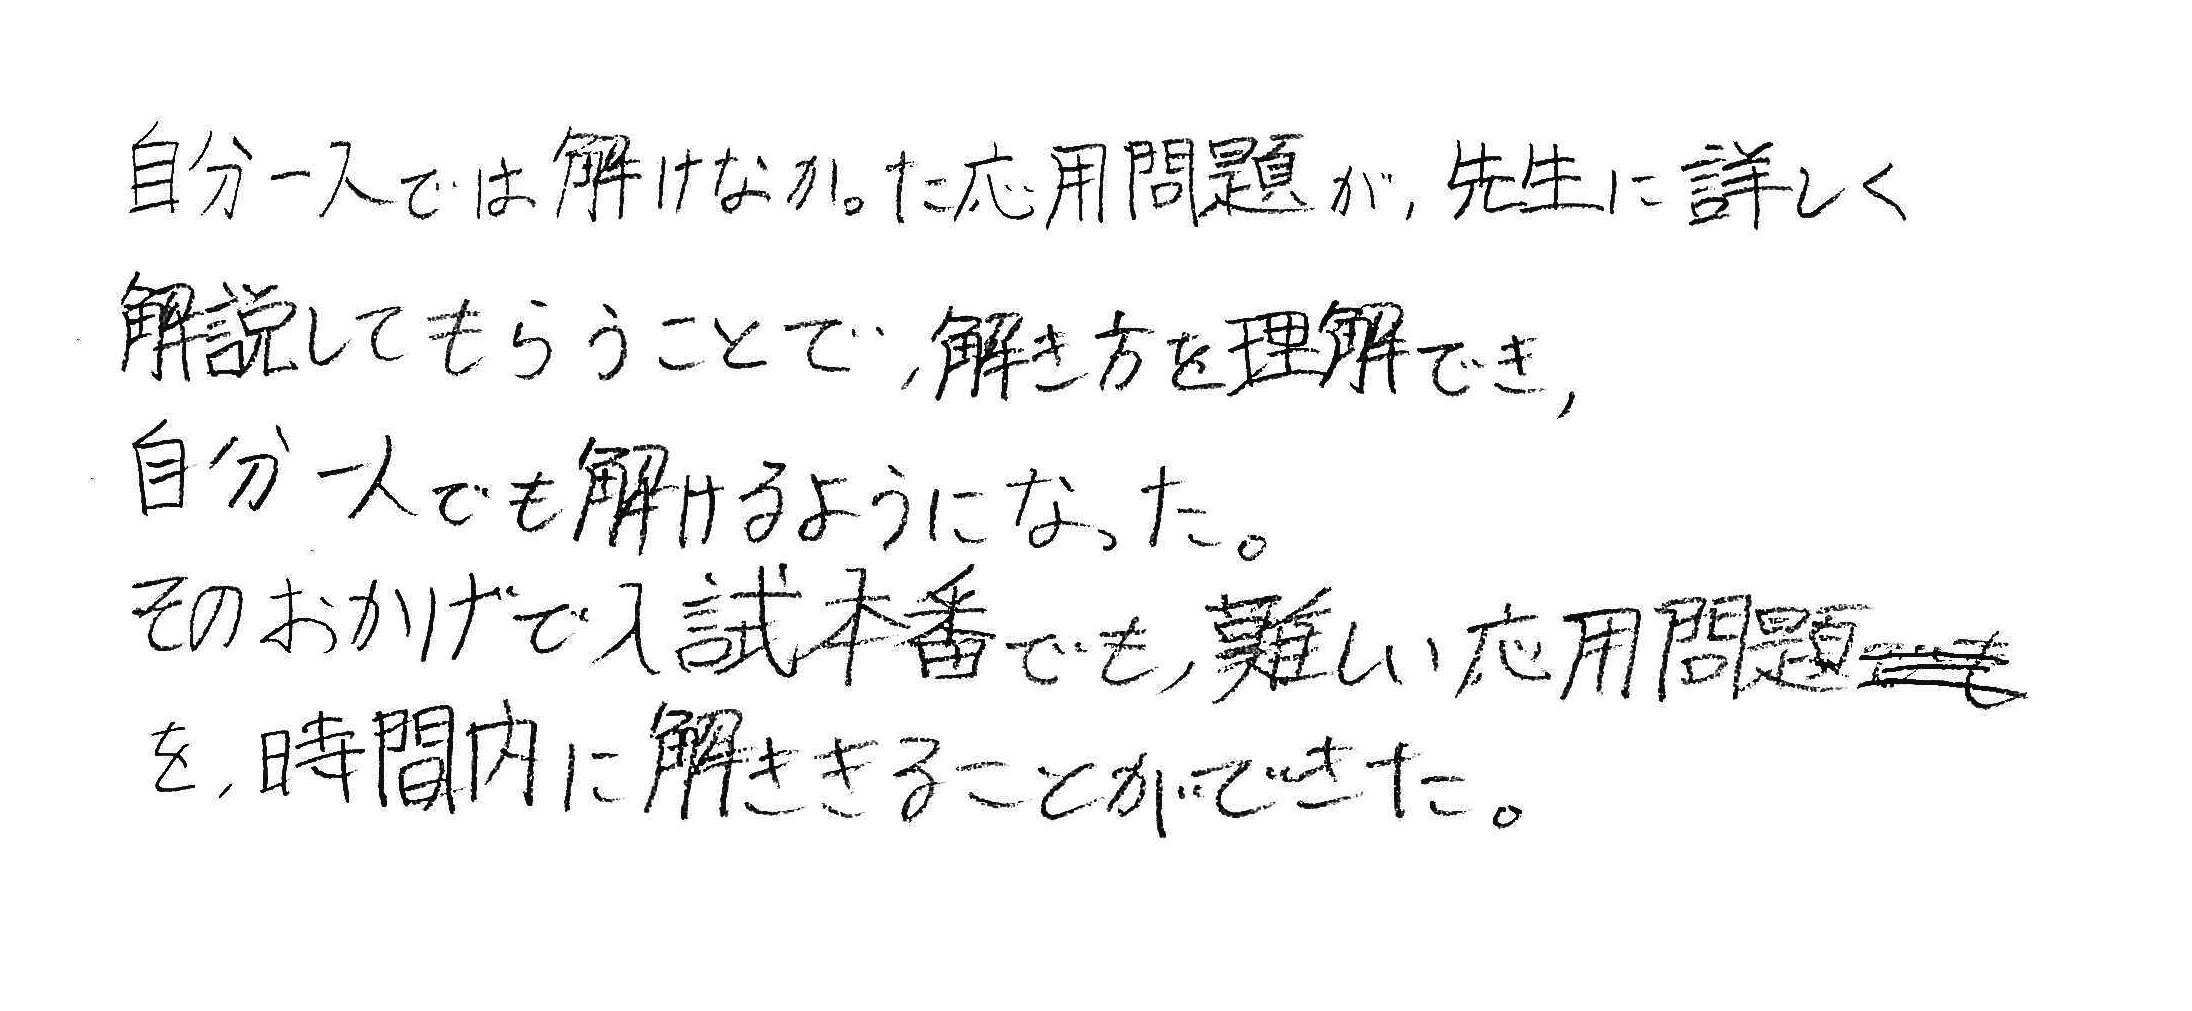 自分一人では解けなかった応用問題が,先生に詳しく
解説してもらうことで,解き方を理解でき,
自分一人でも解けるようになった。
そのおかげで入試本番でも,難しい応用問題
を,時間内に解ききることができた。